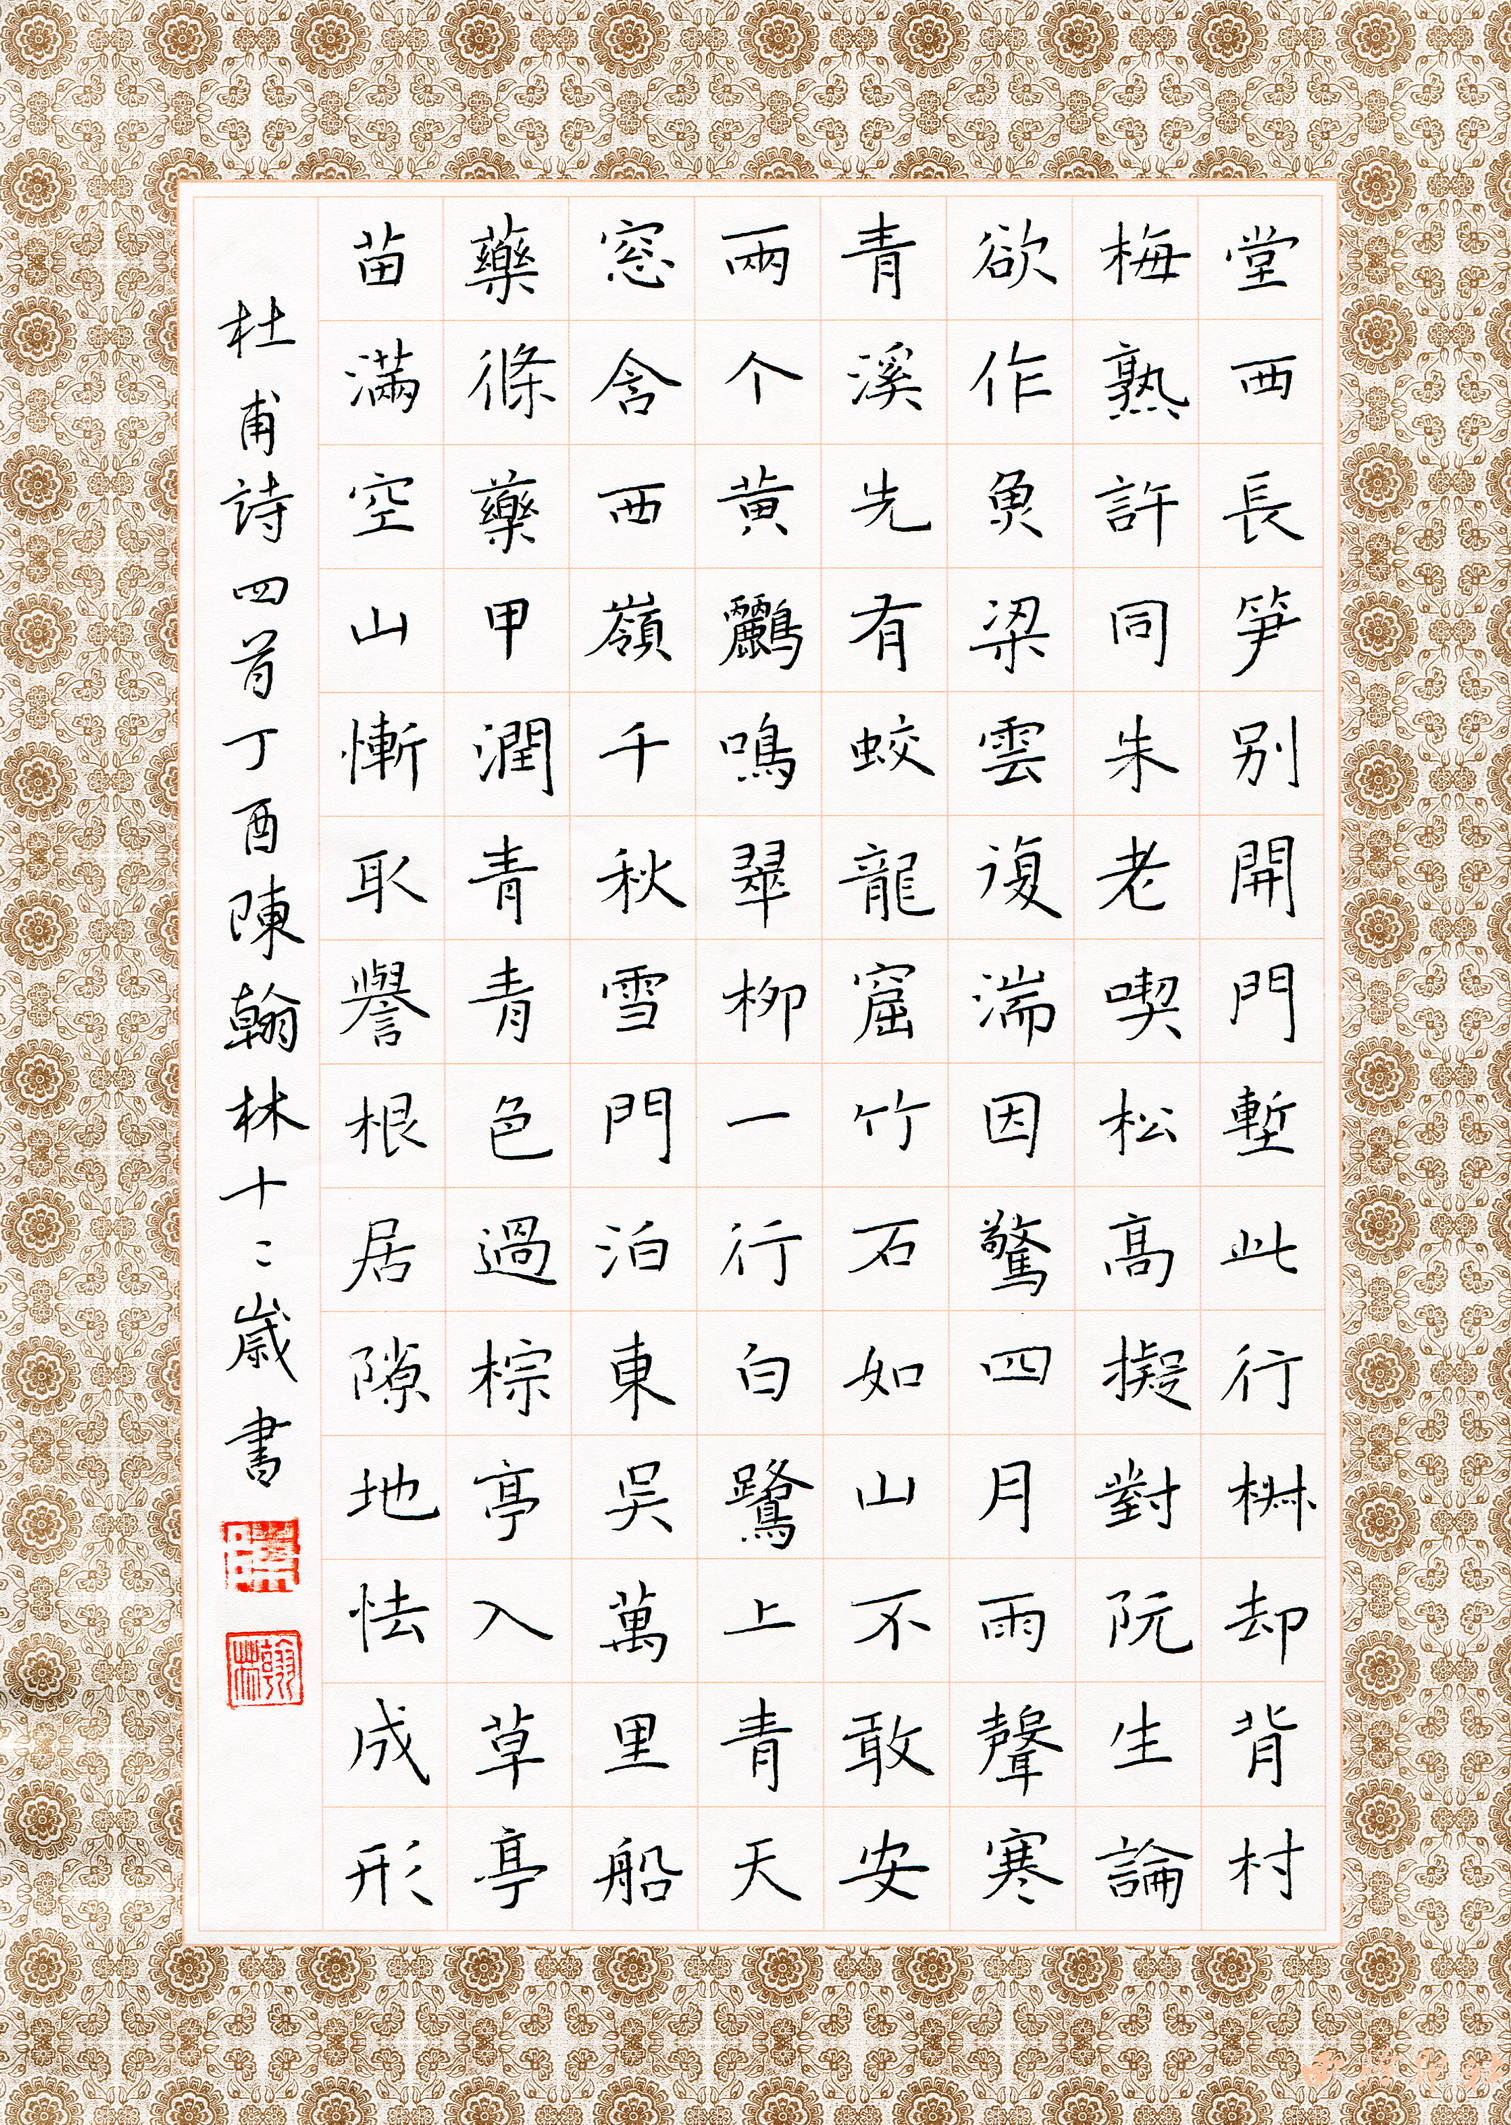 堂西長笋别開門塹北行椒却背村
梅熟許同朱老喫松高擬對阮生論
欲作魚梁雲復湍因驚四月雨聲寒
青溪先有蛟龍窟竹石如山不敢安
兩个黃鸝鳴翠柳一行白鷺上青天
窓含西嶺千秋雪門泊東吴萬里船
藥條藥甲潤青青色過棕亭入草亭
苗滿空山慚取譽根居隙地怯成形
杜甫詩四首丁酉陳翰林十二歲書
翰林